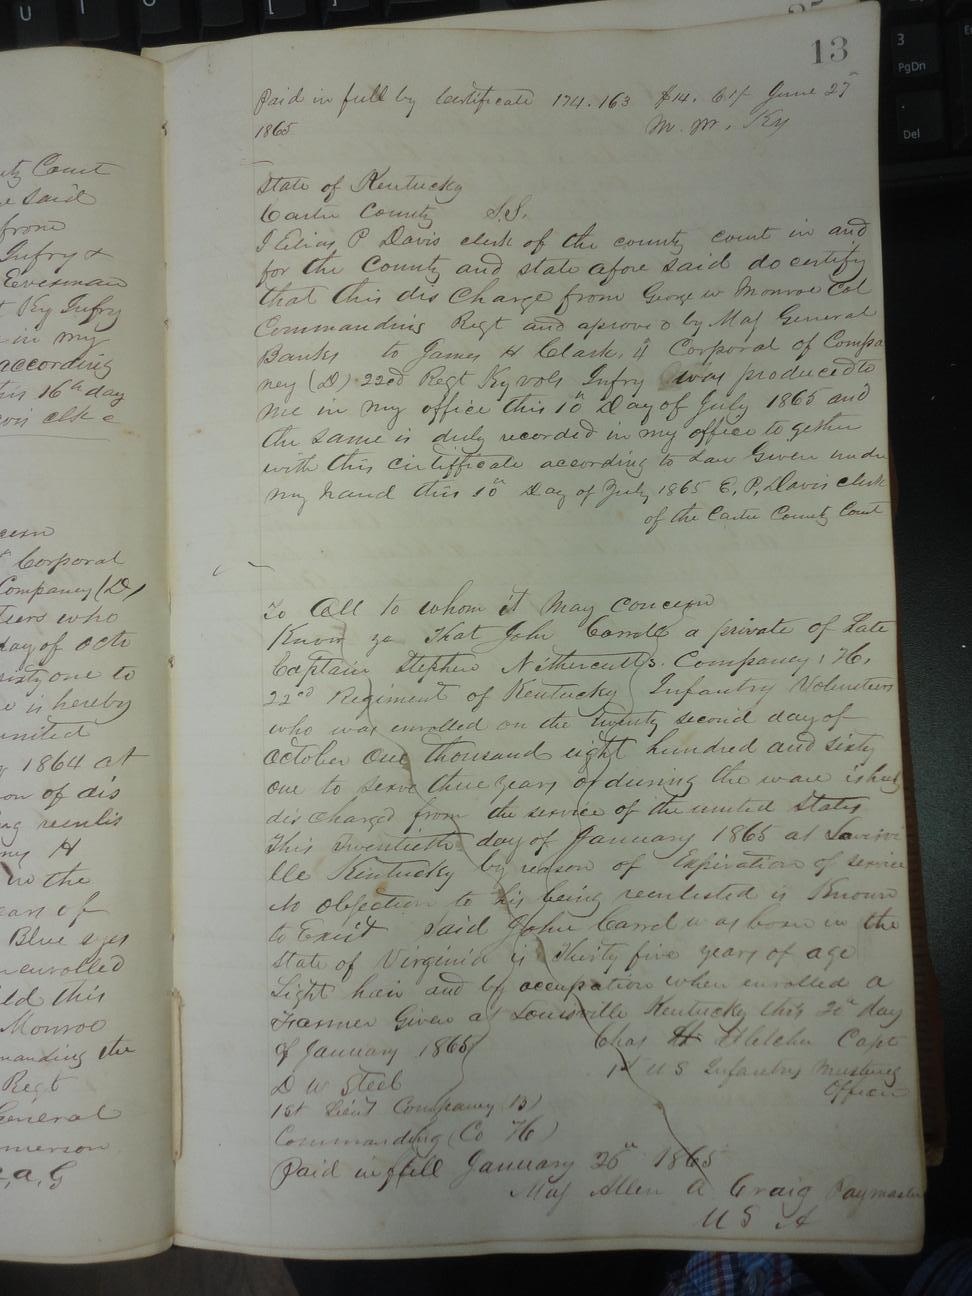 13
Paid in full by Certificate 174.163 $14. June 27
1865 M. M. Ky
State of Kentucky
Carter County S.S.
I Elias P Davis clerk of the county court in and
for the County and state afore said do certify
that this dis Charge from George W Monroe Col
Commanding Regt and aproved by Maj General
Banks to James H Clark, 4" Corporal of Compa
ney (D) 22ed Regt Ky vols Infry was produced to
me in my office this 10" Day of July 1865 and
the same is duly recorded in my office to gether
with this certifficate according to Law Given under
my hand this 10" Day of July 1865 E, P, Davis clerk
of the Carter County Court
To All to whom it May Concern
Know ye That John Carroll a private of Late
Captain Stephen Nethercutts. Company, H,
22nd Regiment of Kentucky Infantry Volunteers
who was enrolled on the twenty second day of
October One thousand eight hundred and sixty
one to serve three years or during the ware is her
dis charged from the service of the united States
This Twentieth day of January 1865 at Louisvi
lle Kentucky by reason of Expiration of service
No objection to his being reenlisted is Known
to Exist Said John Carrol was born in the
State of Virginia is Thirty five years of age
Light hair and by occupation when enrolled a
Farmer Given at Louisville Kentucky this 20" day
of January 1865 Chas H Fletcher Capt
D W Steel 1st U S Infantry Mustering
Officer
1st Lieut Company B)
Commanding (Co H)
Paid in full January 26" 1865
Maj Allen A Craig Paymaster
U S A
ty Court
e said
from
Infry &
Eversman
Ky Infry
in my
according
his 16th day
clk c
cern
Corporal
Company (D)
teers who
day of octo
sixty one to
e is hereby
united
1864 at
on of dis
ng reenlis
ny H
in the
ears of
Blue eyes
enrolled
ld this
Monroe
manding the
Regt
General
merson
A, G
U I O
3
PgDn
Del